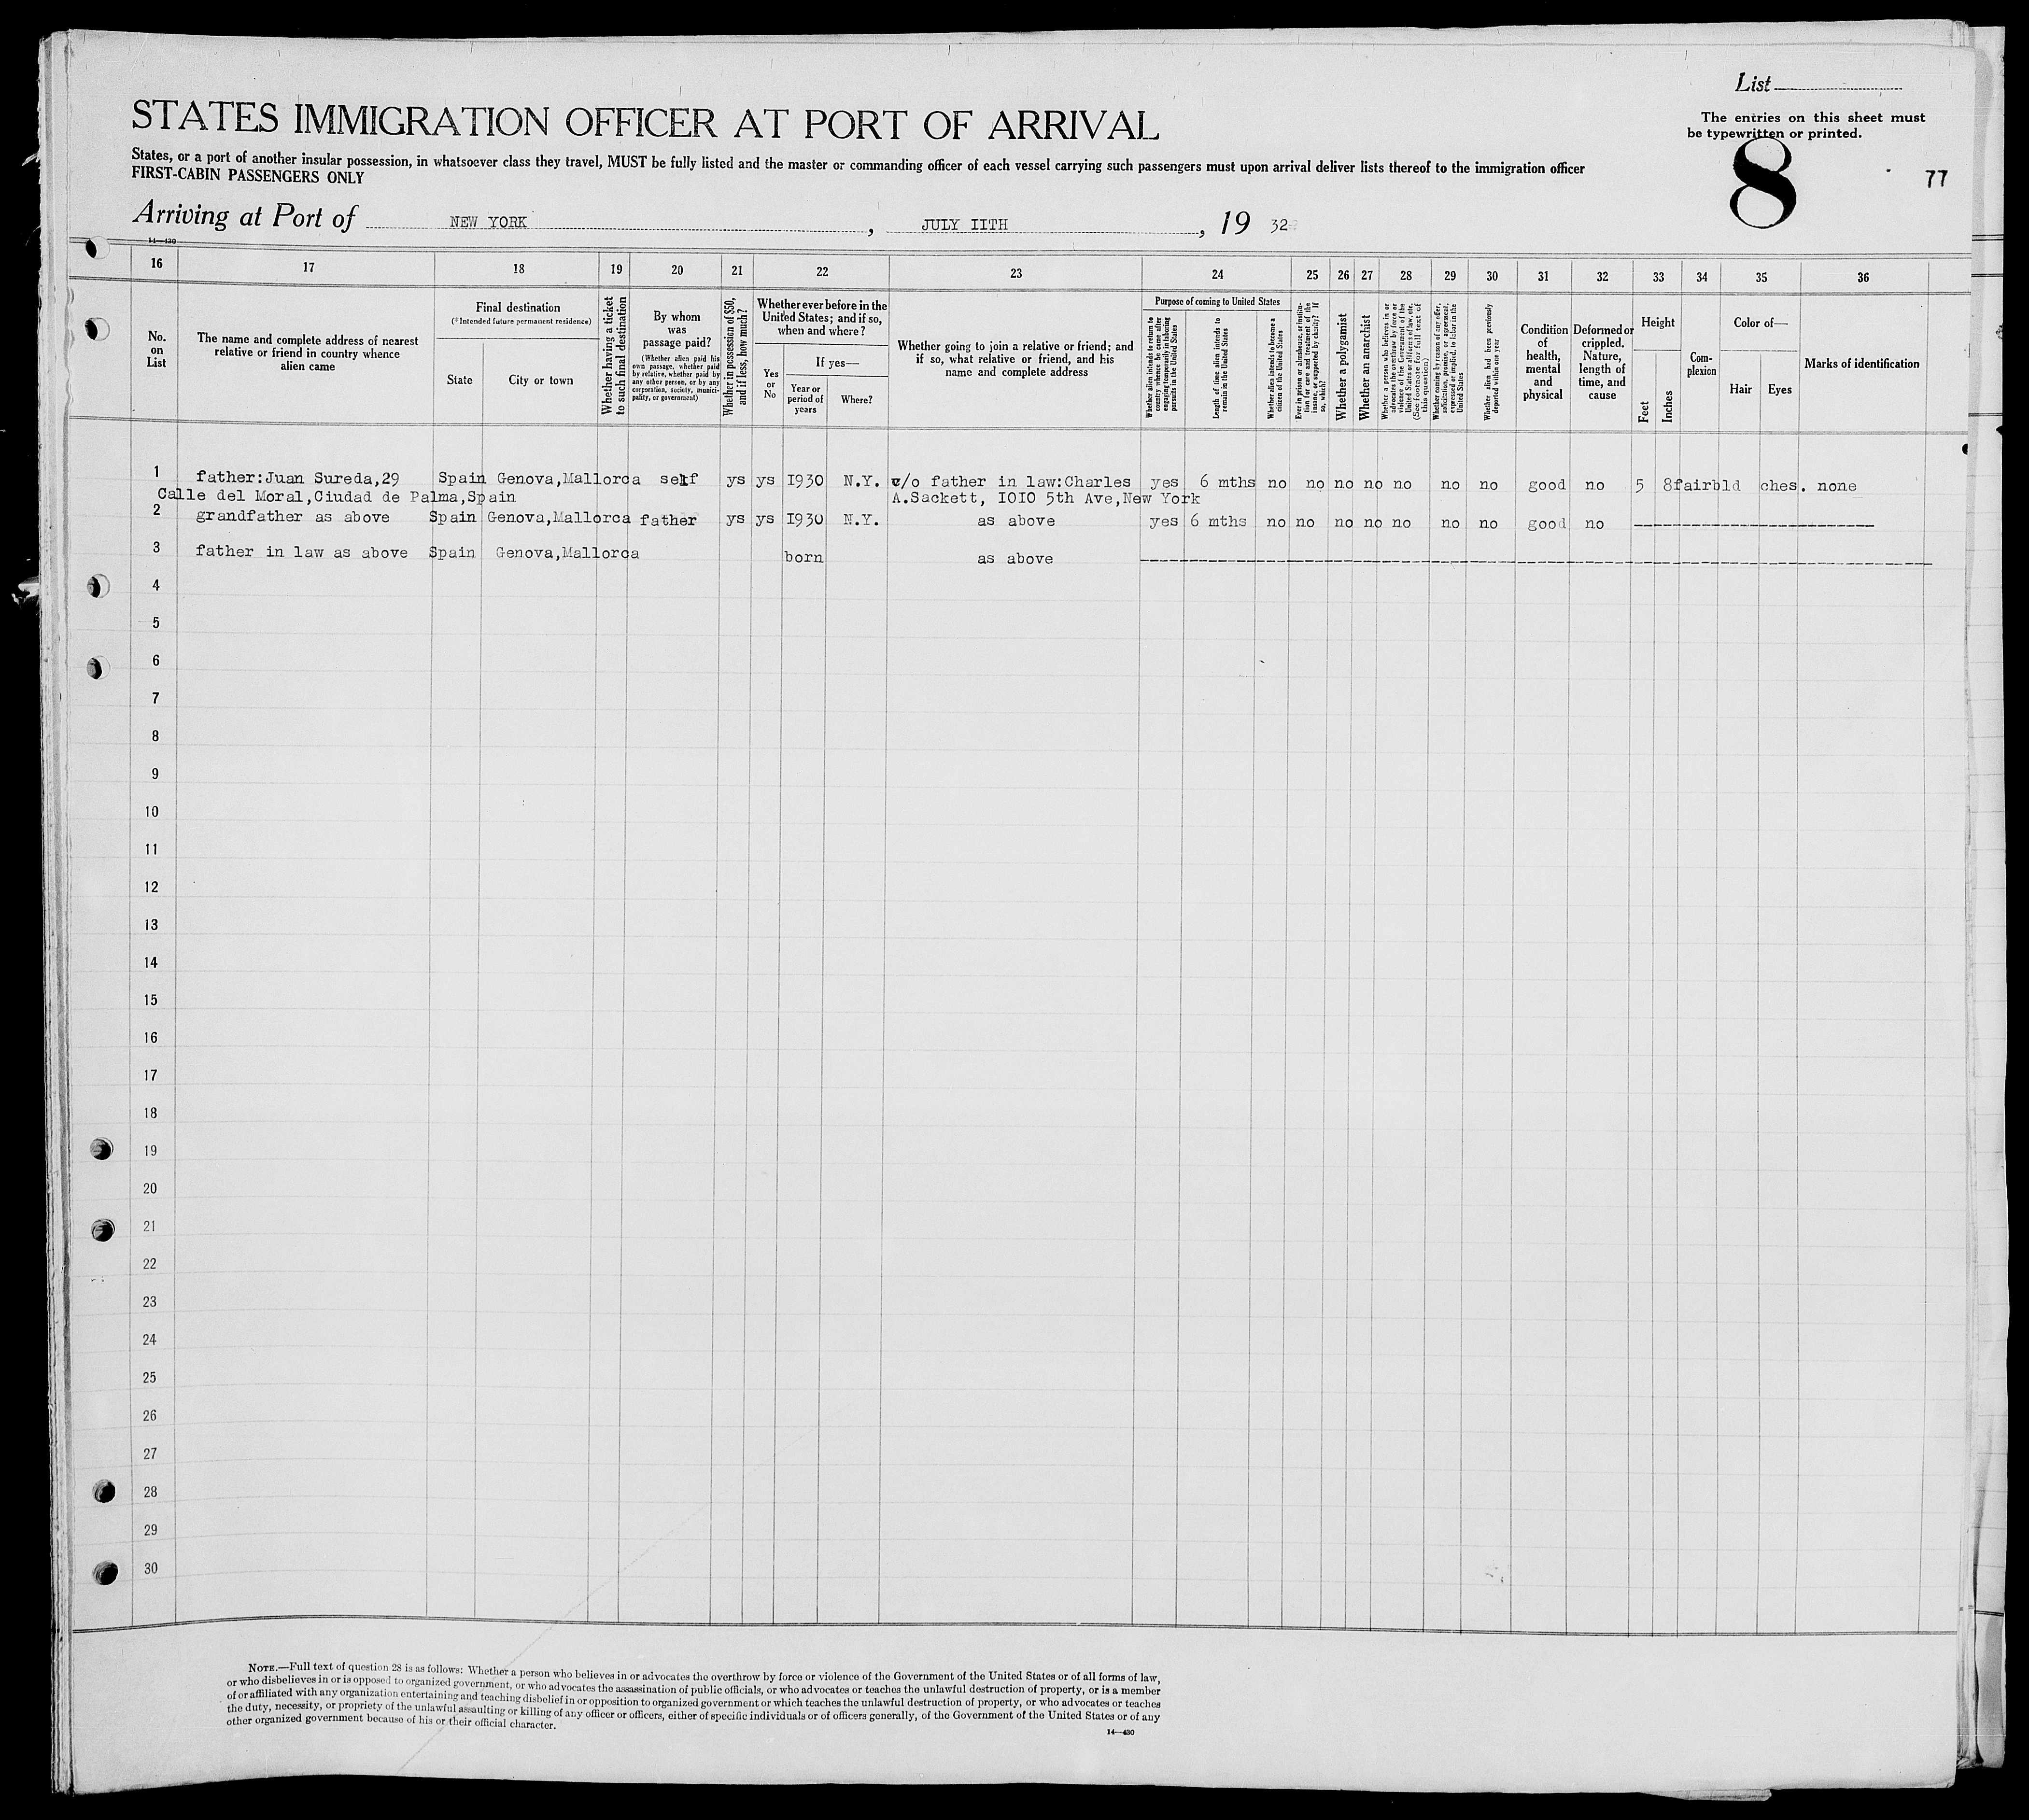 List
The entries on this sheet must
be typewritten or printed.
STATES IMMIGRATION OFFICER AT PORT OF ARRIVAL
8
77
States, or a port of another insular possession, in whatsoever class they travel, MUST be fully listed and the master or commanding officer of each vessel carrying such passengers must upon arrival deliver lists thereof to the immigration officer
FIRST-CABIN PASSENGERS ONLY
Arriving at Port of NEW YORK, JULY IITH, 19 32
14—430
16 17 18 19 20 21 22 23 24 25 26 27 28 29 30 31 32 33 34 35 36
No. on List
The name and complete address of nearest
relative or friend in country whence
alien came
Final destination
(*Intended future permanent residence)
State
City or town
Whether having a ticket
to such final destination
By whom
was
passage paid?
(Whether alien paid his
own passage, whether paid
by relative, whether paid by
any other person, or by any
corporation, society, munici-
pality, or government)
Whether in possession of $50,
and if less, how much?
Whether ever before in the
United States; and if so,
when and where?
Yes
or
No
If yes—
Year or
period of
years
Where?
Whether going to join a relative or friend; and
if so, what relative or friend, and his
name and complete address
Purpose of coming to United States
Whether alien intends to return to
country whence he came after
engaging temporarily in laboring
pursuits in the United States
Length of time alien intends to
remain in the United States
Whether alien intends to become a
citizen of the United States
Ever in prison or almshouse, or institu-
tion for care and treatment of the
insane, or supported by charity? If
so, which?
Whether a polygamist
Whether an anarchist
Whether a person who believes in or
advocates the overthrow by force or
violence of the Government of the
United States or all forms of law, etc.
(See footnote for full text of
this question)
Whether coming by reason of any offer,
solicitation, promise, or agreement,
expressed or implied, to labor in the
United States
Whether alien had been previously
deported within one year
Condition
of
health,
mental
and
physical
Deformed or
crippled.
Nature,
length of
time, and
cause
Height
Feet
Inches
Com-
plexion
Color of—
Hair
Eyes
Marks of identification
1 father:Juan Sureda,29 Spain Genova,Mallorca self ys ys I930 N.Y. c/o father in law:Charles yes 6 mths no no no no no no no good no 5 8 fair bld ches. none
Calle del Moral,Ciudad de Palma,Spain A.Sackett, IOIO 5th Ave,New York
2 grandfather as above Spain Genova,Mallorca father ys ys I930 N.Y. as above yes 6 mths no no no no no no no good no
3 father in law as above Spain Genova,Mallorca born as above
4
5
6
7
8
9
10
11
12
13
14
15
16
17
18
19
20
21
22
23
24
25
26
27
28
29
30
NOTE.—Full text of question 28 is as follows: Whether a person who believes in or advocates the overthrow by force or violence of the Government of the United States or of all forms of law,
or who disbelieves in or is opposed to organized government, or who advocates the assassination of public officials, or who advocates or teaches the unlawful destruction of property, or is a member
of or affiliated with any organization entertaining and teaching disbelief in or opposition to organized government or which teaches the unlawful destruction of property, or who advocates or teaches
the duty, necessity, or propriety of the unlawful assaulting or killing of any officer or officers, either of specific individuals or of officers generally, of the Government of the United States or of any
other organized government because of his or their official character.
14—430